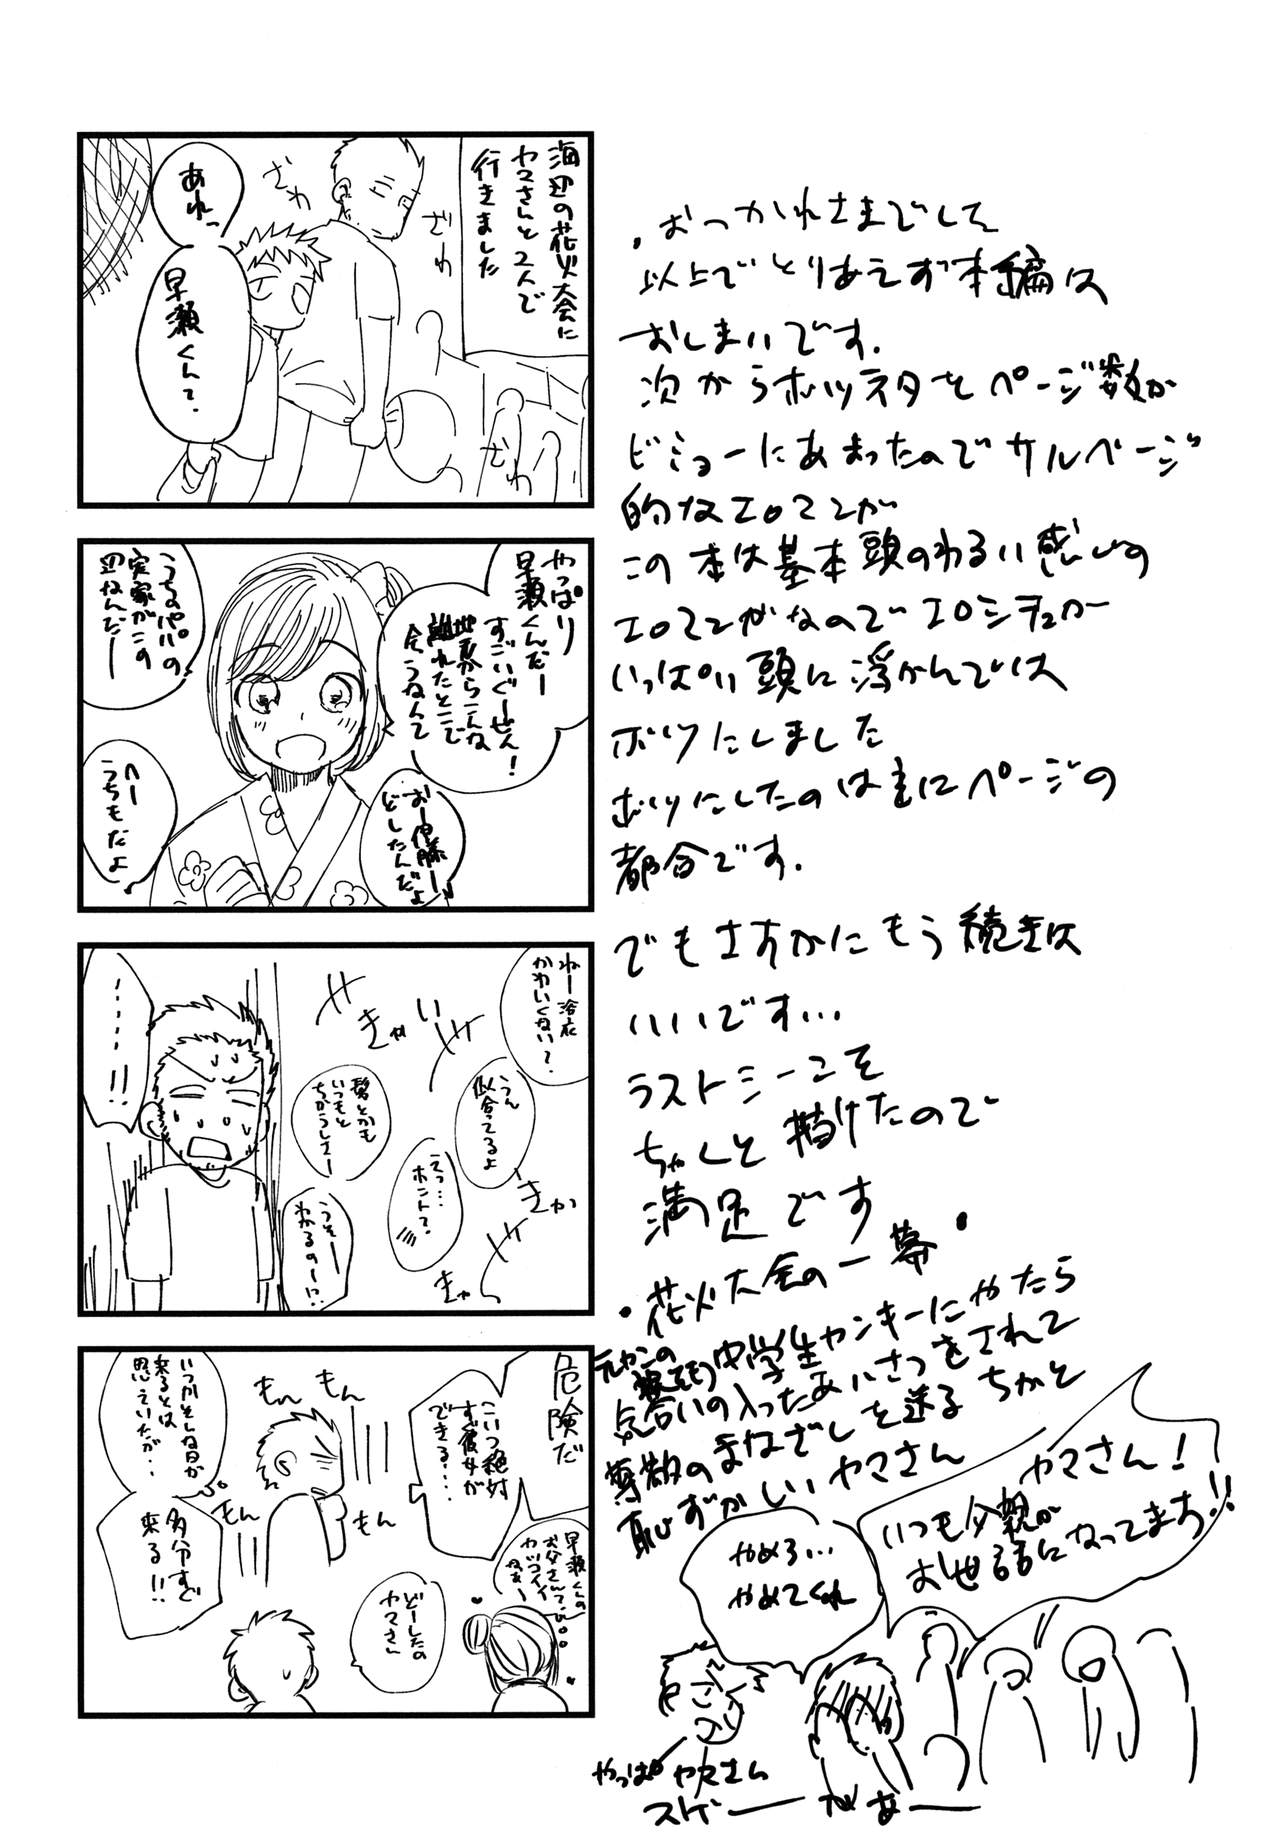 ・おつかれさまでして
以上でとりあえず本編は
おしまいです.
次からボツネタをページ数が
ビミョーにあまったのでサルベージ
的なエロマンガ
この本は基本頭のわるい感じの
エロマンガなのでエロシチュが
いっぱい頭に浮かんでは
ボツにしました
ボツにしたのは主にページの
都合です.
でもさすがにもう続きは
いいです…
ラストシーンこそ
ちゃんと描けたので
満足です
・花火大会の一幕・
元ヤンの
中学生ヤンキーにやたら
気合いの入ったあいさつをされて
尊敬のまなざしを送るちかと
恥ずかしいヤマさん
ヤマさん!
いつも父親が
お世話になってます!!
やめろ…
やめてくれ
やっぱヤマさん
スゲーーがあーー
海辺の花火大会に
ヤマさんと2人で
行きました
ざわ
ざわ
ざわ
あれっ
早瀬くんて.
やっぱり
早瀬くんだー
すごいぐーぜん!
地元からこんな
離れたとこで
会うなんて
おー伊藤ー
どしたんだよ
うちのパパの
実家がこの
辺なんだー
へー
うちもだよ
ねー浴衣
かわいくない?
うん
似合ってるよ
髪とかも
いつもと
ちがうしさー
えっ…
ホント?
うそー
わかるのー!?
きゃ
い
きか
きゃ
……!!
危険だ
こいつ絶対
すぐ彼女が
できる…
早瀬くんの
お父さんて
カッコイイ
ねぇー
もん
もん
もん
もん
どーしたの
ヤマさん
いつかそんな日が
来るとは
思えていたが…
多分すぐ
来る!!